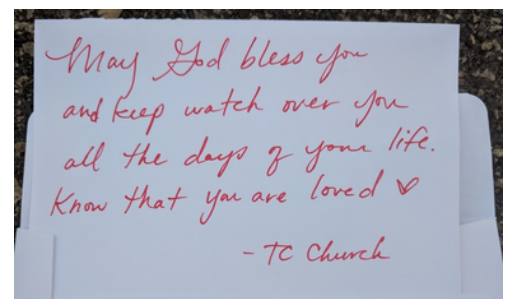 May God bless you
and keep watch over you
all the days of your life.
Know that you are loved ♡
- TC Church